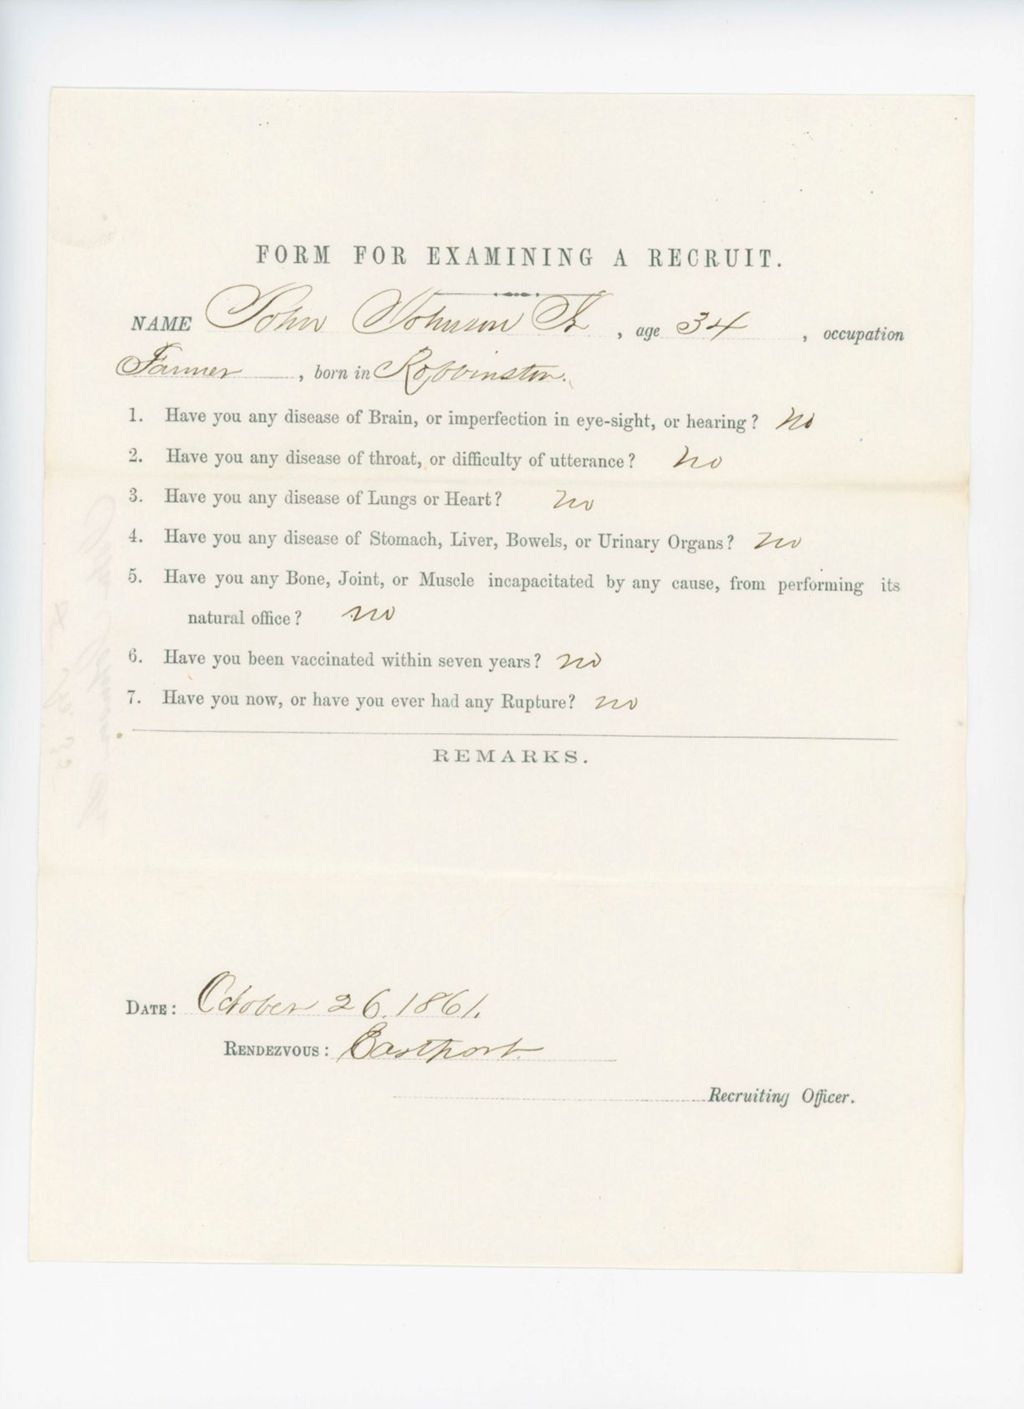 FORM FOR EXAMINING A RECRUIT.
NAME John Johnson Jr , age 34 , occupation
Farmer , born in Robbinston.
1. Have you any disease of Brain, or imperfection in eye-sight, or hearing? No
2. Have you any disease of throat, or difficulty of utterance? No
3. Have you any disease of Lungs or Heart? No
4. Have you any disease of Stomach, Liver, Bowels, or Urinary Organs? No
5. Have you any Bone, Joint, or Muscle incapacitated by any cause, from performing its
natural office? No
6. Have you been vaccinated within seven years? No
7. Have you now, or have you ever had any Rupture? No
REMARKS.
DATE: October 26. 1861.
RENDEZVOUS: Eastport.
Recruiting Officer.